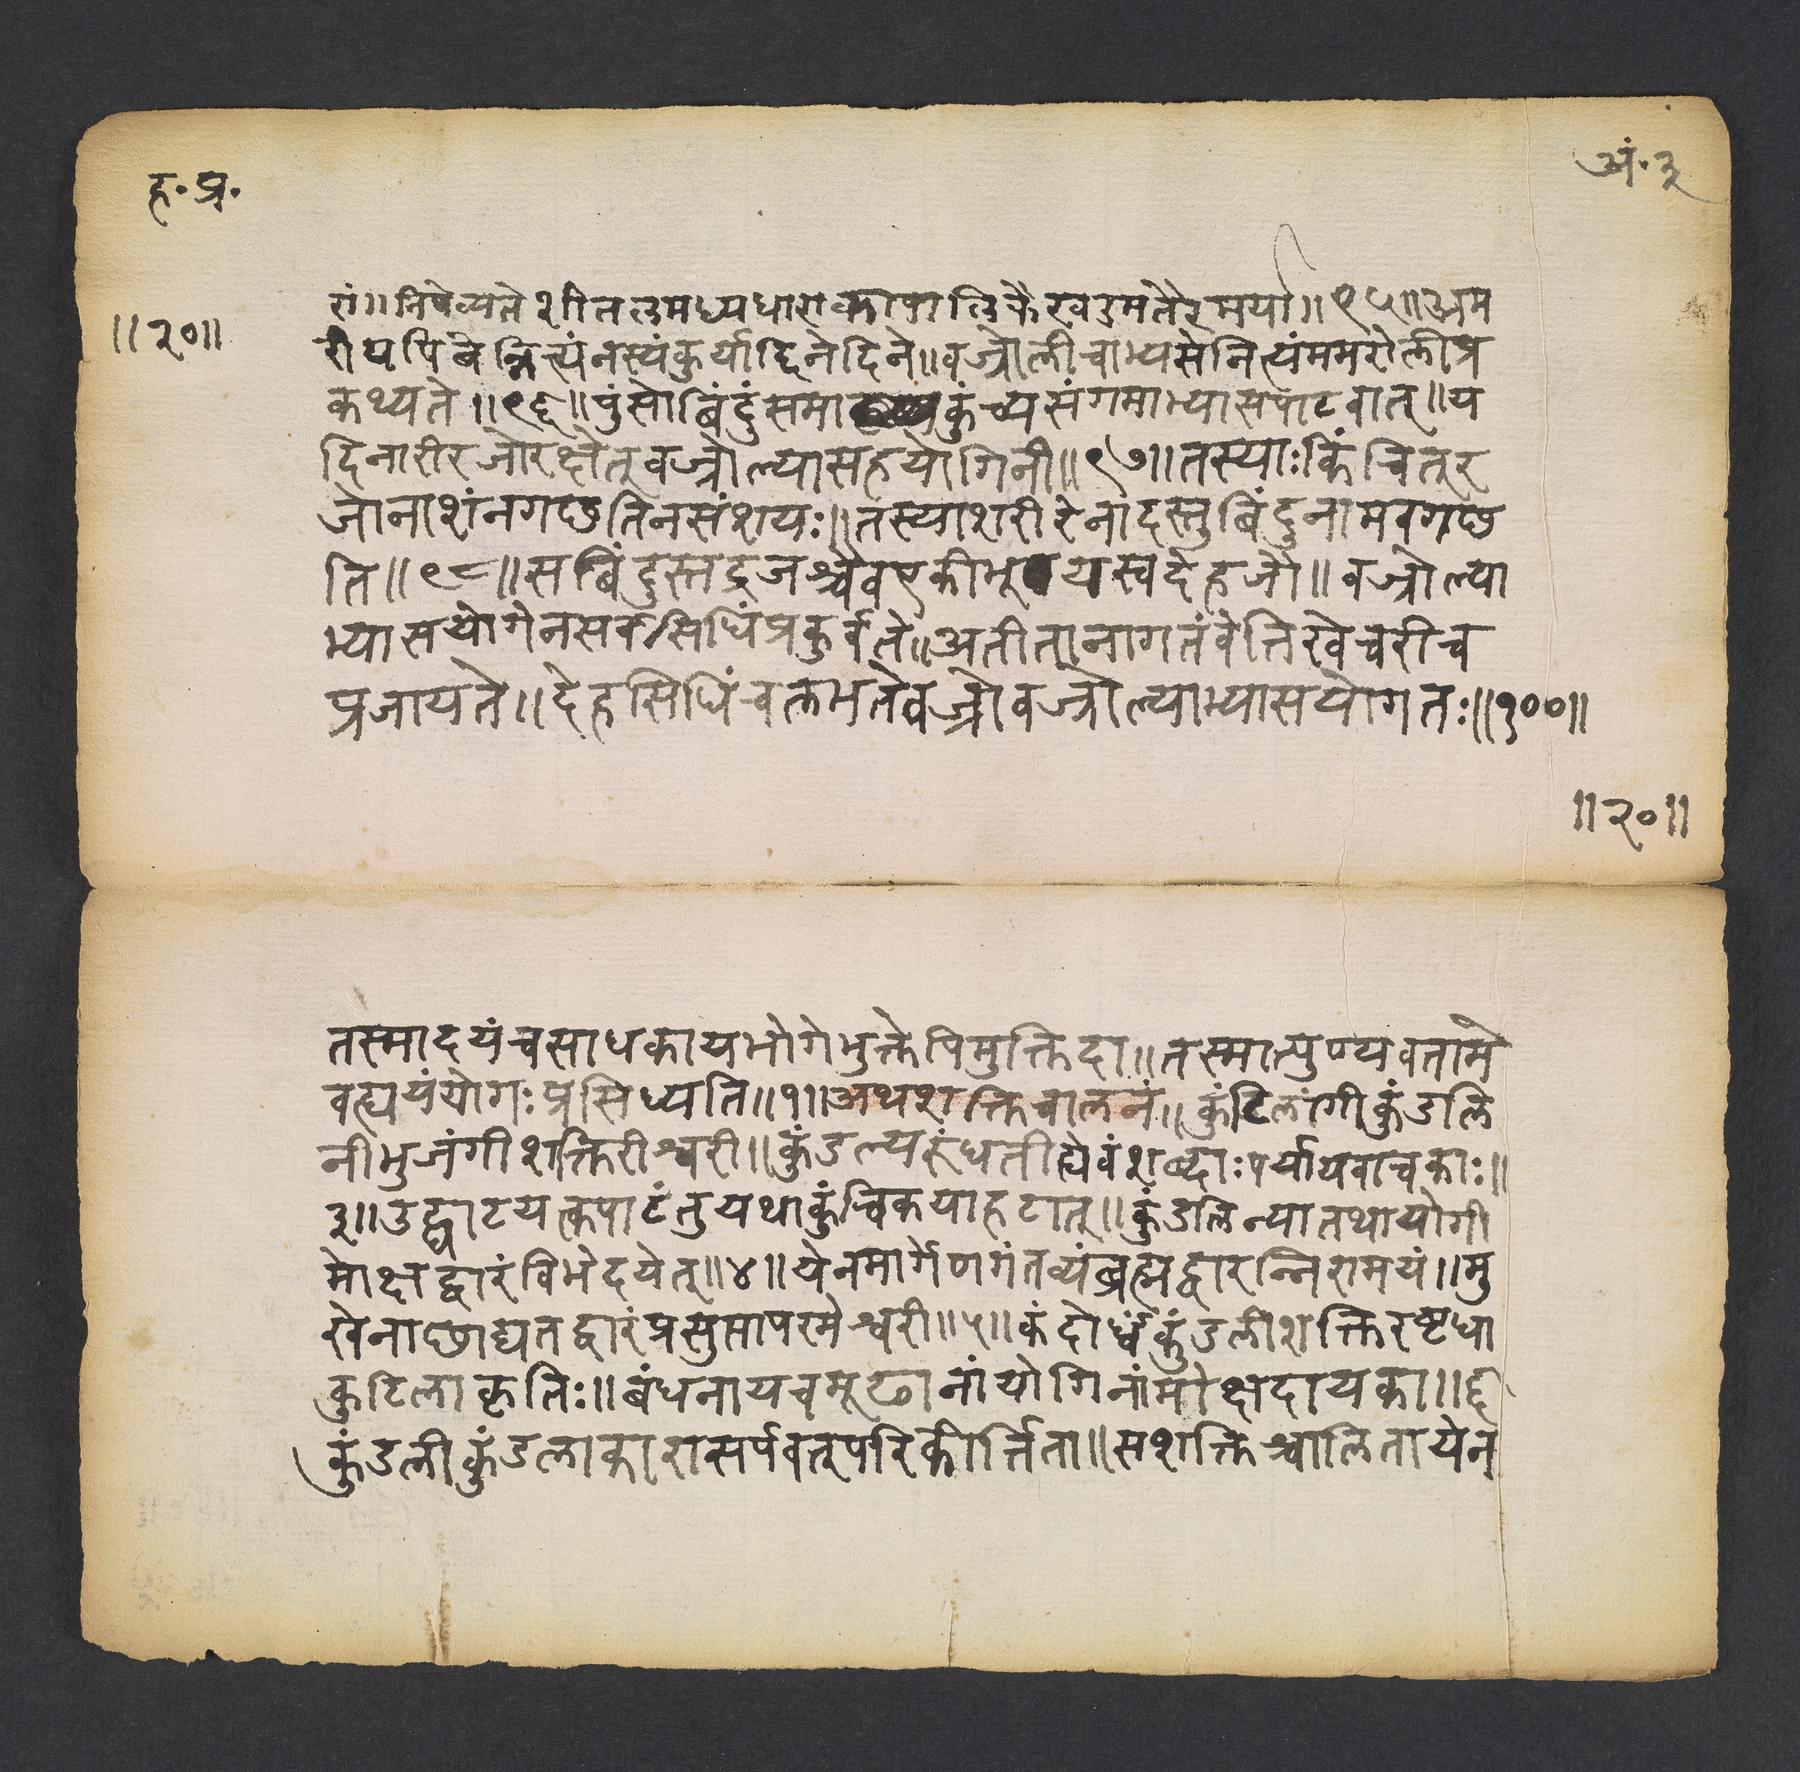 ह॰ प्र॰
अं॰ ३
॥२०॥
रां॥ निषेव्यते शीतलमध्यधारा कापालिकै खंडमतेरमर्या॥ ९५॥ अम
रीपपिबेन्नित्यंनस्यंकुर्याद्दिनेदिने॥ वज्रोलीचाभ्यसेनित्यंममरोलीप्र
कथ्यते॥ ९६॥ पुंसोबिंदुंसमाकुंच्यसंगमाभ्यासपाटवात्॥ य
दिनारीरजोरक्षेत्वज्रोल्यासहयोगिनी॥ ९७॥ तस्याःकिंचित्र
जोनाशंनगछतिनसंशयः॥ तस्याशरीरेनादस्तुबिंदुनामवगछ
ति॥ ९८॥ सबिंदुस्तद्रजश्चैवएकीभूयस्वदेहजौ॥ वज्रोल्या
भ्यासयोगेनसर्वसिधिंप्रकुर्वते॥ अतीतानागतंवेत्तिखेचरीच
प्रजायते॥ देहसिधिंचलभतेवज्रोवज्रोल्याभ्यासयोगतः॥ १००॥
॥२०॥
तस्मादयंचसाधकायभोगेभुक्तेपिमुक्तिदा॥ तस्मात्पुण्यवतामे
वह्ययंयोगःप्रसिध्यति॥ १॥ अथशक्तिचालनं॥ कुंटिलांगीकुंडलि
नीभुजंगीशक्तिरीश्वरी॥ कुंडल्यरूंधतीह्येवंशब्दाःपर्यायवाचकाः॥
३॥ उद्घाटयत्कपाटंतुयथाकुंचिकयाहटात्॥ कुंडलिन्यातथायोगी
मोक्षद्वारंविभेदयेत्॥ ४॥ येनमार्गेणगंतव्यंब्रह्मद्वारन्निरामयं॥ मु
खेनाछाद्यतद्वारंप्रसुप्तापरमेश्वरी॥ ५॥ कंदोर्ध्वंकुंडलीशक्तिरष्टधा
कुटिलाकृतिः॥ बंधनायचमूढानांयोगिनांमोक्षदायका॥ ६
कुंडलीकुंडलाकारासर्पवत्परिकीर्त्तिता॥ सशक्तिश्चालितायेन